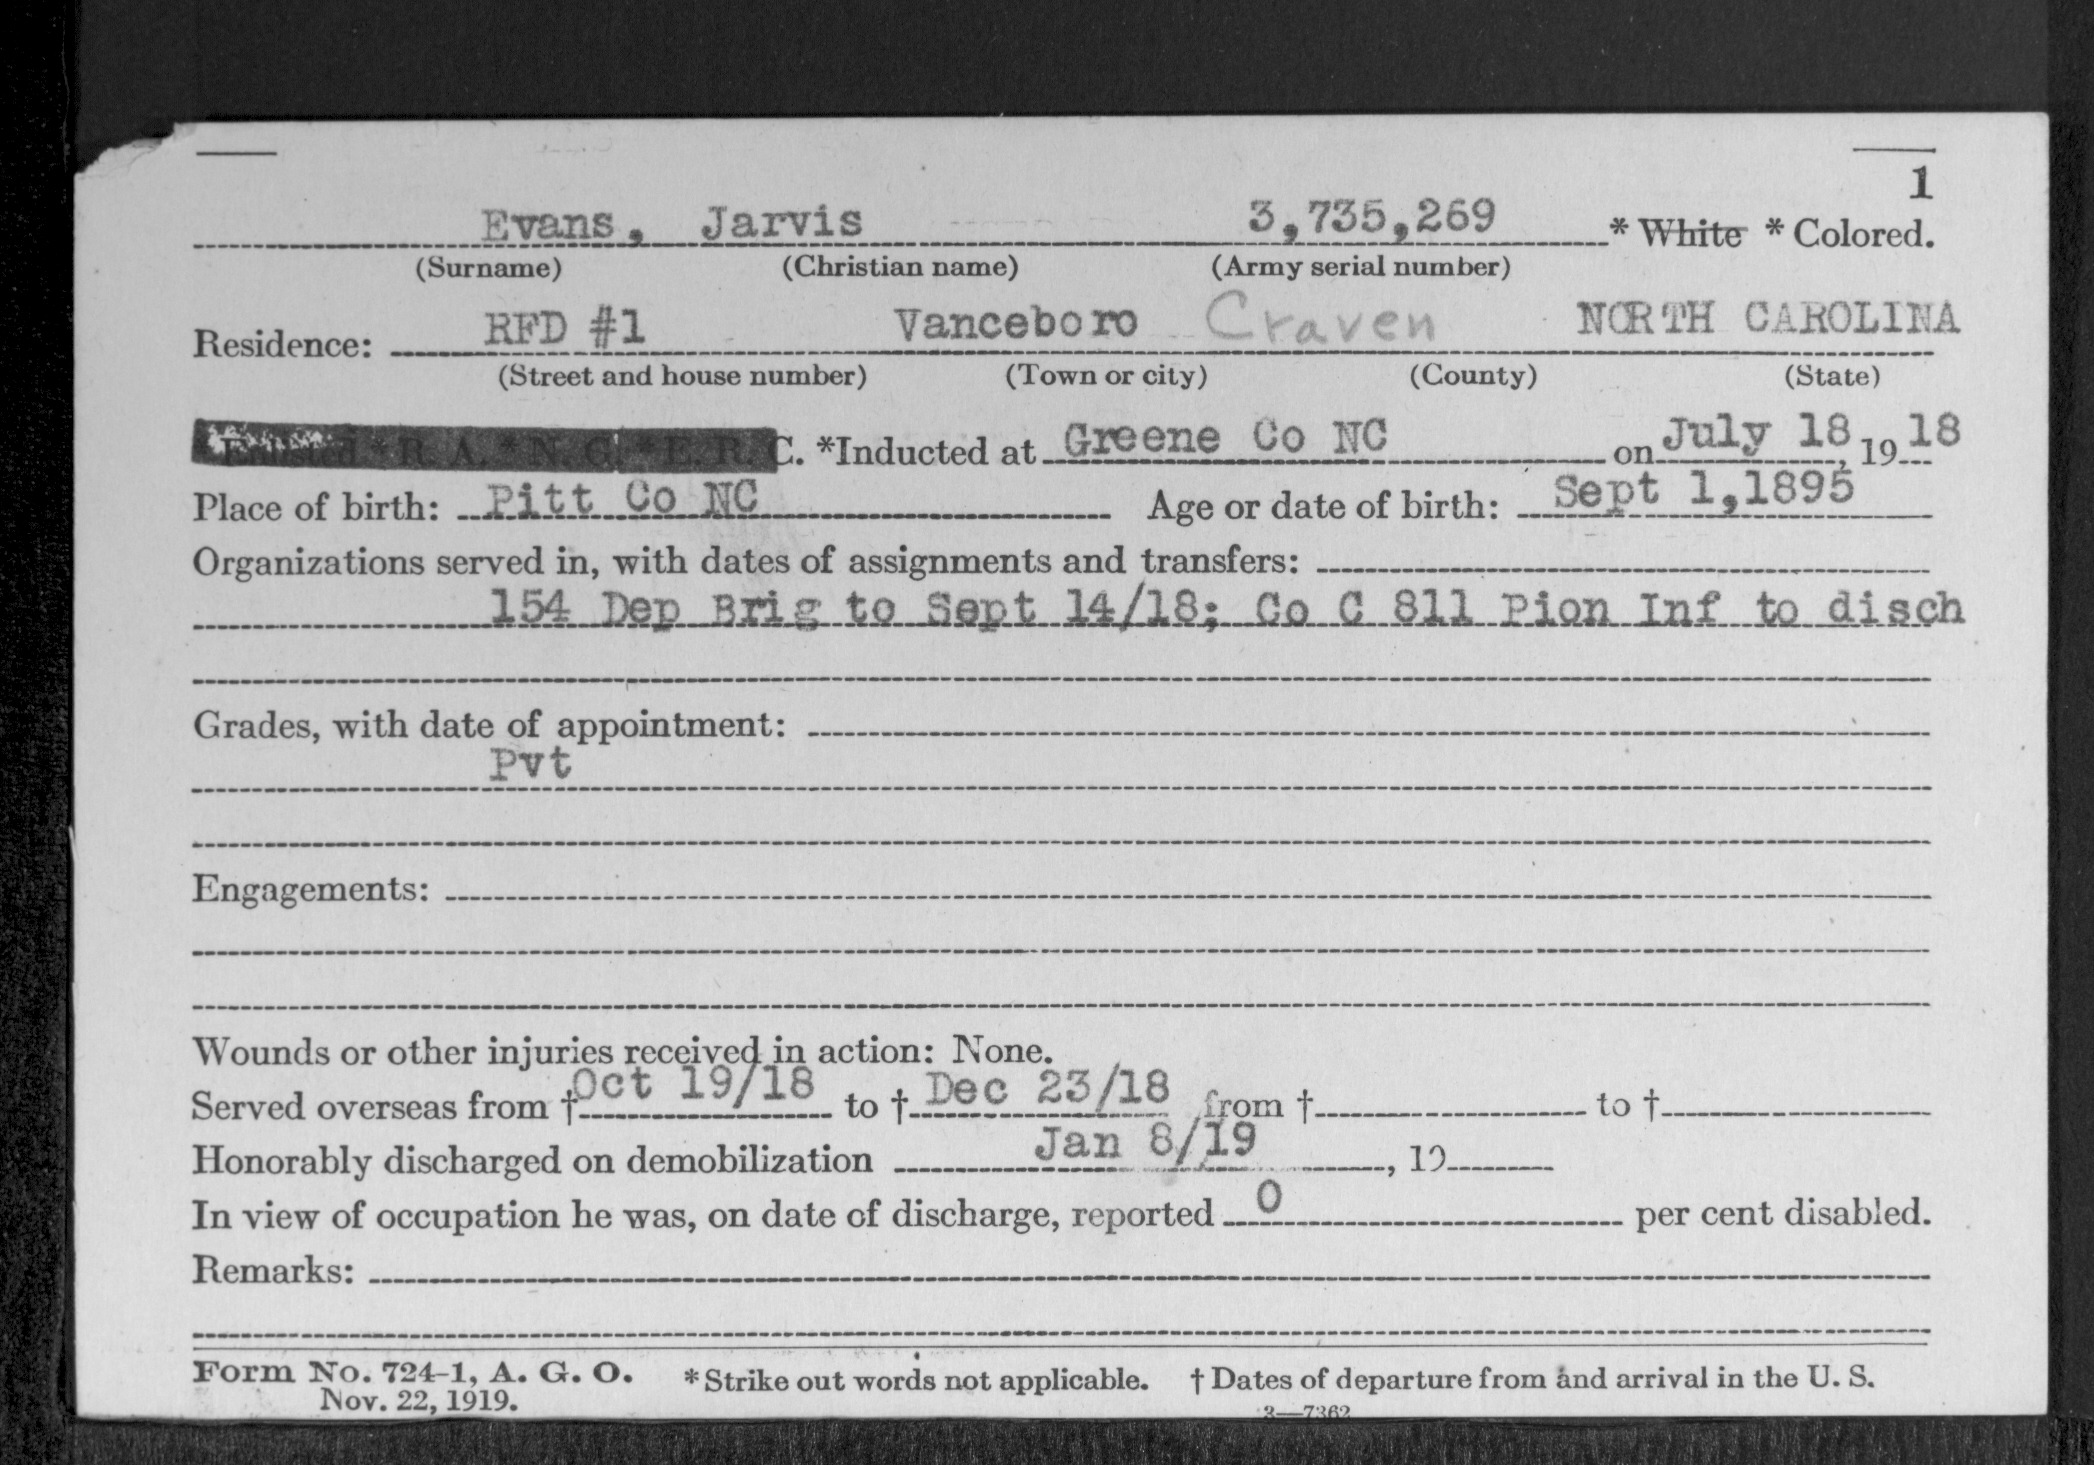 1
Evans, Jarvis 3,735,269 * White * Colored.
(Surname) (Christian name) (Army serial number)
Residence: RFD #1 Vanceboro Craven NORTH CAROLINA
(Street and house number) (Town or city) (County) (State)
Enlisted * R. A. * N. G. * E. R. C. *Inducted at Greene Co NC on July 18, 1918
Place of birth: Pitt Co NC Age or date of birth: Sept 1,1895
Organizations served in, with dates of assignments and transfers:
154 Dep Brig to Sept 14/18; Co C 811 Pion Inf to disch
Grades, with date of appointment:
Pvt
Engagements:
Wounds or other injuries received in action: None.
Served overseas from † Oct 19/18 to † Dec 23/18 from † to †
Honorably discharged on demobilization Jan 8/19, 19
In view of occupation he was, on date of discharge, reported 0 per cent disabled.
Remarks:
Form No. 724-1, A. G. O. * Strike out words not applicable. † Dates of departure from and arrival in the U. S.
Nov. 22, 1919. 3—7362